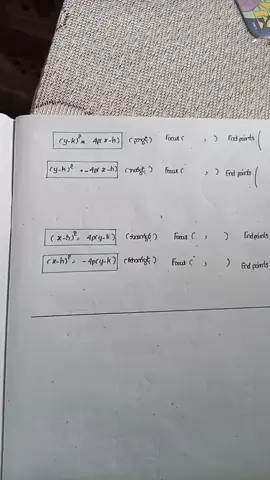 (y-k)² = 4p(x-h) Focus ( , ) End points (
(y-k)² = -4p(x-h) Focus ( , ) End points (
(x-h)² = 4p(y-k) Focus ( , ) End points
(x-h)² = -4p(y-k) Focus ( , ) End points